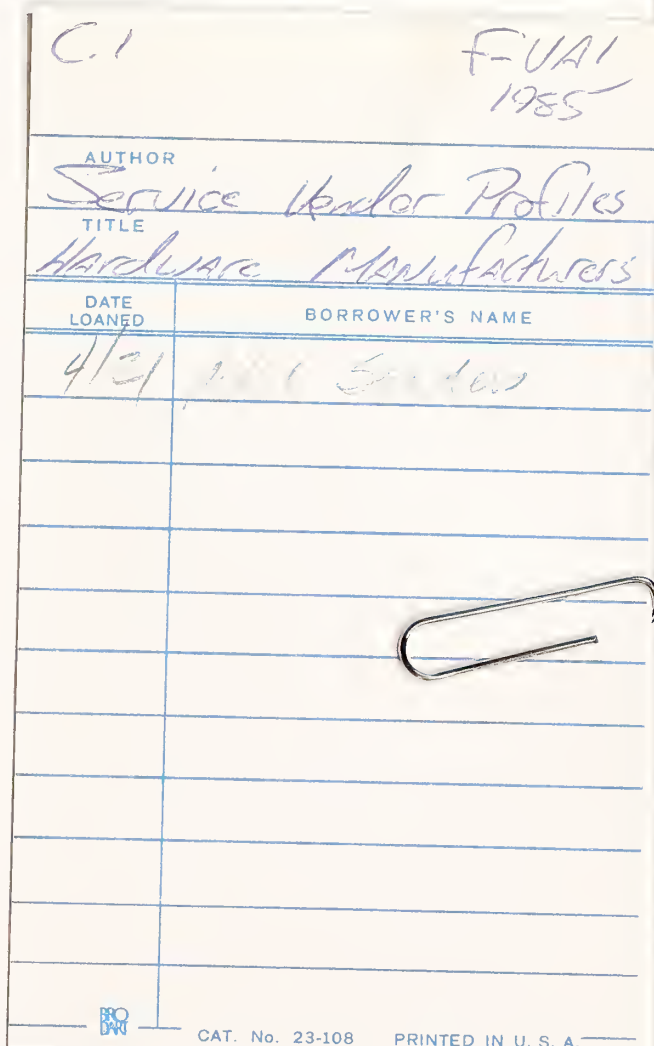 C.1 F-UA1
1985
AUTHOR
Service Vendor Profiles
TITLE
Hardware Manufacturers
DATE LOANED BORROWER'S NAME
4/21
BRO
DART
CAT. No. 23-108 PRINTED IN U. S. A.